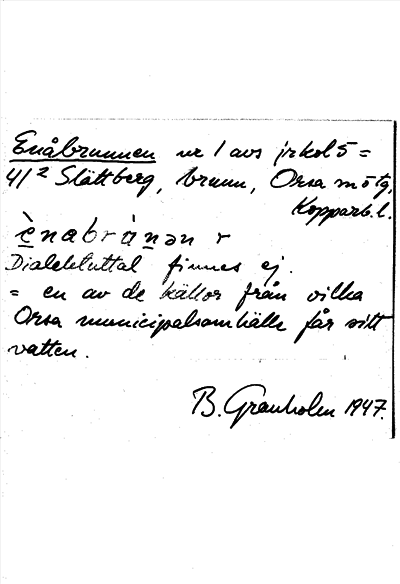 Enåbrunnen nr 1 avs jrkol 5 =
41/2 Slättberg, brunn, Orsa m ö tg,
Kopparb. l.
ènabrúnən r
Dialektuttal finnes ej.
= en av de källor från vilka
Orsa municipalsamhälle får sitt
vatten.
B. Granholm 1947.